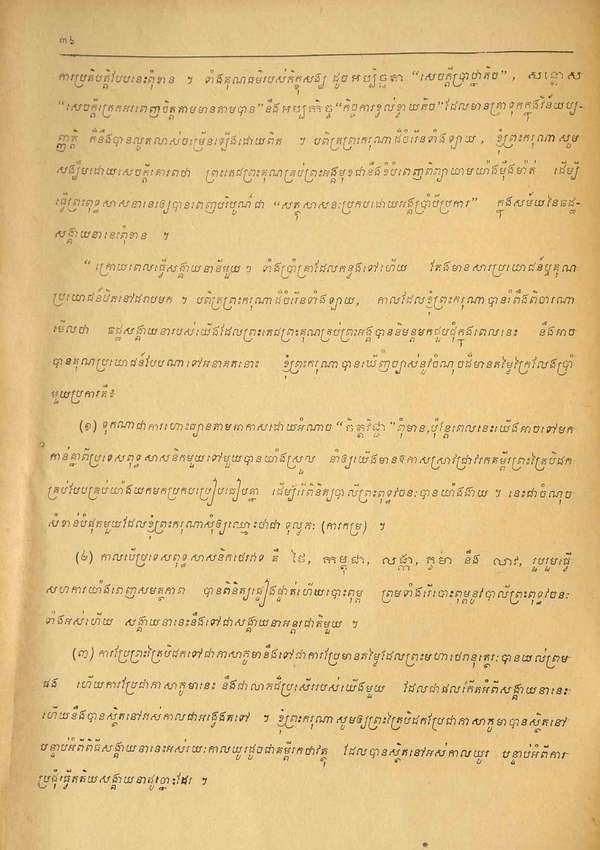 ៣៦
ការប្រតិបត្តិបែបនេះពុំខាន ។ ទាំងគុណធម៌របស់ភិក្ខុសង្ឃ ដូច អប្បិច្ឆតា “សេចក្ដីប្រាថ្នាតិច”, សន្តោស
“សេចក្ដីត្រេកអរពេញចិត្តតាមមានតាមបាន” នឹងអប្បកិច្ច “កិច្ចការខ្វល់ខ្វាយតិច” ដែលមានគ្រាទុកក្នុងវិន័យប្ប-
ញ្ញត្តិ ក៏នឹងបានលូតលាស់ចម្រើនឡើងដោយពិត ។ បពិត្រព្រះករុណាដ៏ចំរើនទាំងឡាយ, ខ្ញុំព្រះករុណា សូម
សង្ឃឹមដោយសេចក្ដីគោរពថា ព្រះតេជព្រះគុណគ្រប់ព្រះអង្គមុខជានឹងខំបំពេញពិព្យាយាមយ៉ាងម៉ឺងម៉ាត់ ដើម្បី
ធ្វើព្រះពុទ្ធសាសនានេះឲ្យបានពេញបរិបូណ៌ជា “សត្ថុសាសនៈប្រកបដោយអង្គប្រាំបីប្រការ” ក្នុងសម័យនៃឆដ្ឋ-
សង្គាយនានេះពុំខាន ។
“ក្រោយពេលធ្វើសង្គាយនានីមួយៗ ទាំងប្រាំគ្រាដែលកន្លងទៅហើយ តែងមានសារប្រយោជន៍ឬគុណ
ប្រយោជន៍ពិតនៅដែលមក ។ បពិត្រព្រះករុណាដ៏ចំរើនទាំងឡាយ, កាលដែលខ្ញុំព្រះករុណាបានរំពឹងពិចារណា
មើលថា ឆដ្ឋសង្គាយនារបស់យើងដែលព្រះតេជព្រះគុណគ្រប់ព្រះអង្គបាននិមន្តមកជួបជុំក្នុងពេលនេះ នឹងអាច
បានគុណប្រយោជន៍បែបណាទៅអនាគតនោះ ខ្ញុំព្រះករុណាបានឃើញច្បាស់នូវចំណុចដ៏មានតម្លៃក្រៃលែងប្រាំ
មួយប្រការគឺ៖
(១) ទុកណាជាការហោះហ្យានតាមអាកាសដោយអំណាច “ចិត្តវិជ្ជា” ពុំមាន, ប៉ុន្តែពេលនេះយើងអាចទៅមក
កាន់គ្នាពីប្រទេសពុទ្ធសាសនិកមួយទៅមួយបានយ៉ាងស្រួល នាំឲ្យយើងមានឱកាសស្រាវជ្រាវរកគម្ពីរព្រះត្រៃបិដក
គ្រប់បែបគ្រប់យ៉ាងយកមកប្រកបប្រៀបធៀបគ្នា ដើម្បីរើពិនិត្យបាលីព្រះពុទ្ធវចនៈបានយ៉ាងងាយ ។ នេះជាចំណុច
សំខាន់បំផុតមួយដែលខ្ញុំព្រះករុណាសុំឲ្យឈ្មោះថាជា ទុល្លភៈ (ការកម្រ) ។
(២) កាលបើប្រទេសពុទ្ធសាសនិកថេរវាទ គឺ ថៃ, កម្ពុជា, លង្កា, ភូមា នឹង លាវ, រួបរួមធ្វើ
សហការយ៉ាងពេញសមត្ថភាព បានពិនិត្យផ្ទៀងផ្ទាត់ហើយបោះពុម្ព ព្រមទាំងរើបោះពុម្ពនូវបាលីព្រះពុទ្ធវចនៈ
ទាំងអស់ហើយ សង្គាយនានេះនឹងទៅជាសង្គាយនាអន្តរជាតិមួយ ។
(៣) ការប្រែព្រះត្រៃបិដកទៅជាភាសាភូមានឹងទៅជាការប្រែមានតម្លៃដែលព្រះមហាថេរានុត្ថេរៈបានយល់ព្រម
ផង ហើយការប្រែជាភាសាភូមានេះ នឹងជាលាភដ៏ប្រសើររបស់យើងមួយ ដែលជាផលកើតអំពីសង្គាយនានេះ
ហើយនឹងបានស្ថិតនៅអស់កាលជាអង្វែងតទៅ ។ ខ្ញុំព្រះករុណាសូមឲ្យព្រះត្រៃបិដកប្រែជាភាសាភូមាបានស្ថិតនៅ
បន្ទាប់អំពីពិធីសង្គាយនានេះអស់រយៈកាលយូរដូចជាគម្ពីរកថាវត្ថុ ដែលបានស្ថិតនៅអស់កាលយូរ បន្ទាប់អំពីការ
ប្រជុំធ្វើតតិយសង្គាយនាដូច្នោះដែរ ។